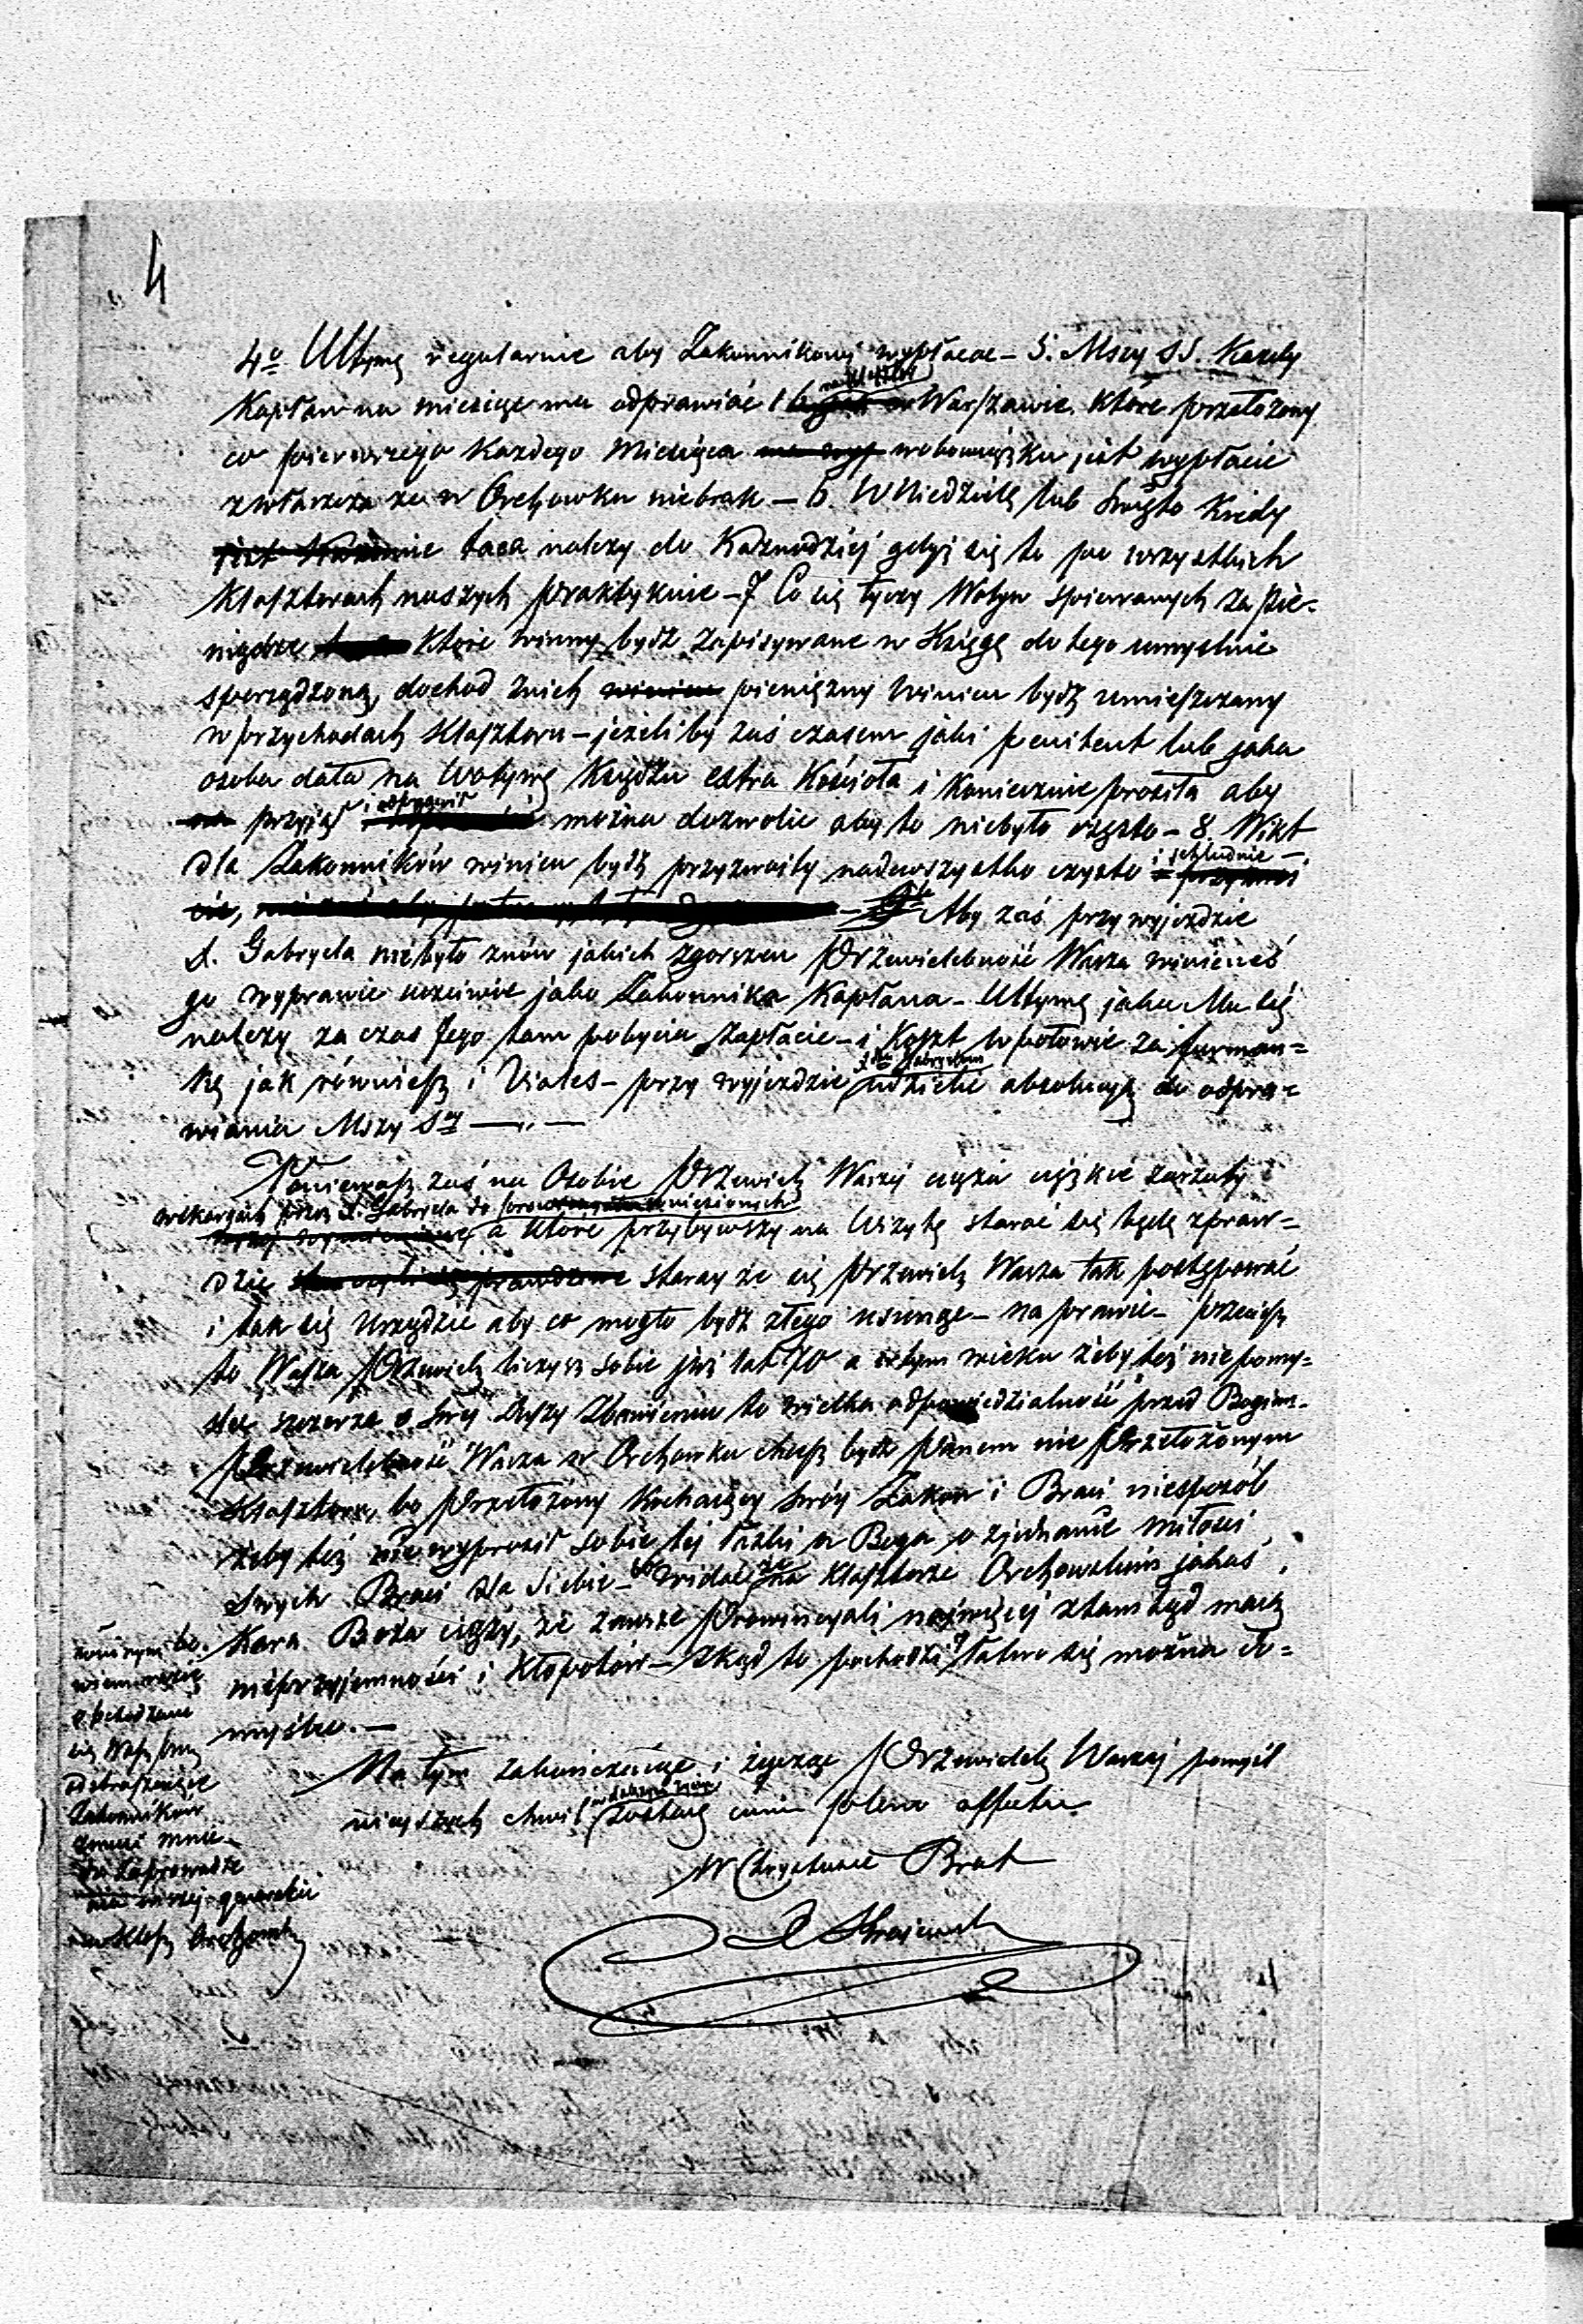 4
4º Ultymę regularnie aby Zakonnikowi wypłacać – 5. Mszy SS. Każdy
Kapłan na miesiąc ma odprawiać 16 Warszawie. Które przełożony
co pierwszego Każdego Miesiąca w obowiązku jest wypłacić
zwłaszcza że w Orchowku niebrak – 6. W Niedzielę lub Święto Kiedy
taca należy do Kaznodziei gdyż się to po wszystkich
Klasztorach naszych praktykuie – 7 Co się tyczy Wotyw spiewanych za pie-
niądze Które winny bydź zapisywane w Księgę do tego umyslnie
sporządzoną, dochod znich pienięzny winien bydź umieszczany
w przychodach Klasztoru – jeżeliby zaś czasem jaki penitent lub jaka
osoba dała na Wotywę Księdzu extra Kościoła i Koniecznie prosiła aby
przyjął i odprawił można dozwolić aby to niebyło często – 8. Wikt
dla Zakonników winien bydź przyzwoity nadewszystko czysto i schludnie –
– 9 Aby zaś przy wyjezdzie
X. Gabryela niebyło znów jakich zgorszeń Przewielebność Wasza winieneś
go wyprawić uczciwie jako Zakonnika Kapłana – Ultymę jaka Mu się
należy za czas Jego tam pobycia zapłacić – i Koszt w połowie za furman-
kę jak również i Viales – przy wyjezdzie X. Gabryelowi udzielić absolucyę do odpra-
wiania Mszy Sej —„—
Ponieważ zaś na Osobie Przewiel. Waszej ciężą ciężkie zarzuty
w skargach przez X. Gabryela do zaniesionych
a Które przybywszy na Wizytę starać się będę spraw-
dzić staray że się Przewiel. Wasza tak postępować
i tak się urządzić aby co mogło bydź złego usunąć – na prawić – przecież
to Wasza Przewiel. liczysz sobie już lat 70 a w tym wieku żeby też nie pomy-
śleć szczerze o swej Duszy Zbawieniu to wielka odpowiedzialność przed Bogiem –
Przewielebność Wasza w Orchowku chcesz bydź Panem nie Przełożonym
Klasztoru, bo Przełożony Kochający swój Zakon i Braci niesposób
żeby też niewyprosił sobie tej łaski u Boga o zjednanie miłości
swych Braci dla siebie – widać że na Klasztorze Orchowskim jakaś
Kara Boża ciąży, że zawsze Prowincyali najwięcej ztamtąd mają
nieprzyjemności i Kłopotów – Zkąd to pochodzi? łatwo się można do-
myśleć. –
obchodzenie
się
Zakonników
zmusi mnie
do zaprowadze
nia
Na tym zakończając i życząc Przewielebn. Waszej pomyśl
niejszych chwil w dalszym życiu zostaję cum pleno affectu
W Chrystusie Brat